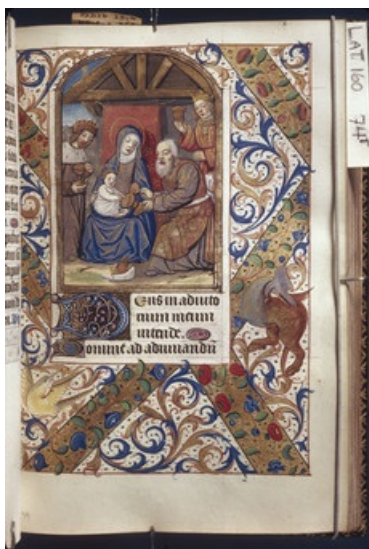 LAT 160 74r
Deus in adiuto
rium meum
intende.
Domine ad adiuuandū